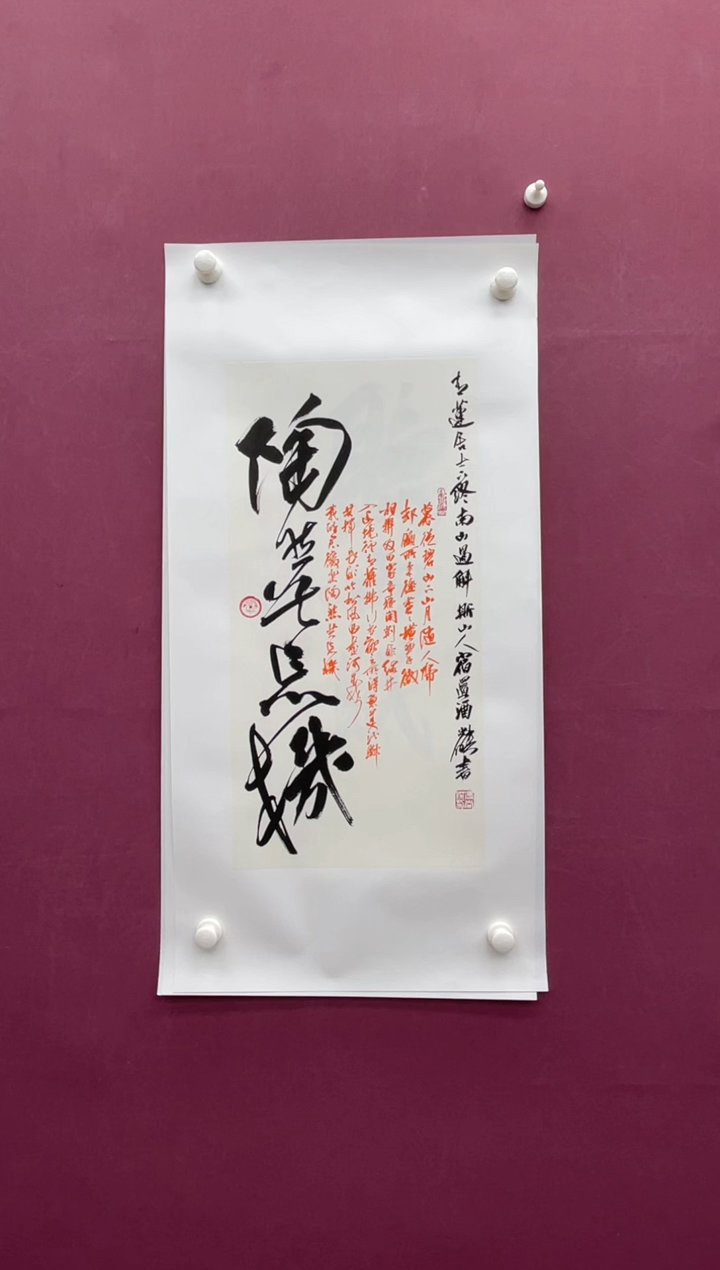 青蓮居士下終南山過斛斯山人宿置酒
暮從碧山下山月隨人歸
却顧所來徑蒼蒼橫翠微
相攜及田家童稚開荊扉綠竹
入幽徑青蘿拂行衣歡言得所憩美酒聊
共揮長歌吟松風曲盡河星稀
我醉君復樂陶然共忘機
陶然共忘機